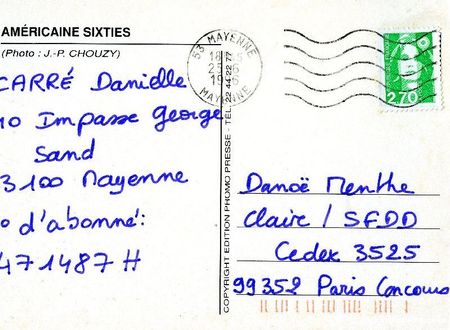 AMÉRICAINE SIXTIES
(Photo : J.-P. CHOUZY)
CARRÉ Danielle
10 Impasse George
Sand
53100 Mayenne
° d'abonné:
471487 H
53 MAYENNE
MAYENNE
2,70
COPYRIGHT EDITION PROMO PRESSE - TÉL. 22 44 22 77
Danoë Menthe
Claire / SFDD
Cedex 3525
99352 Paris Concours